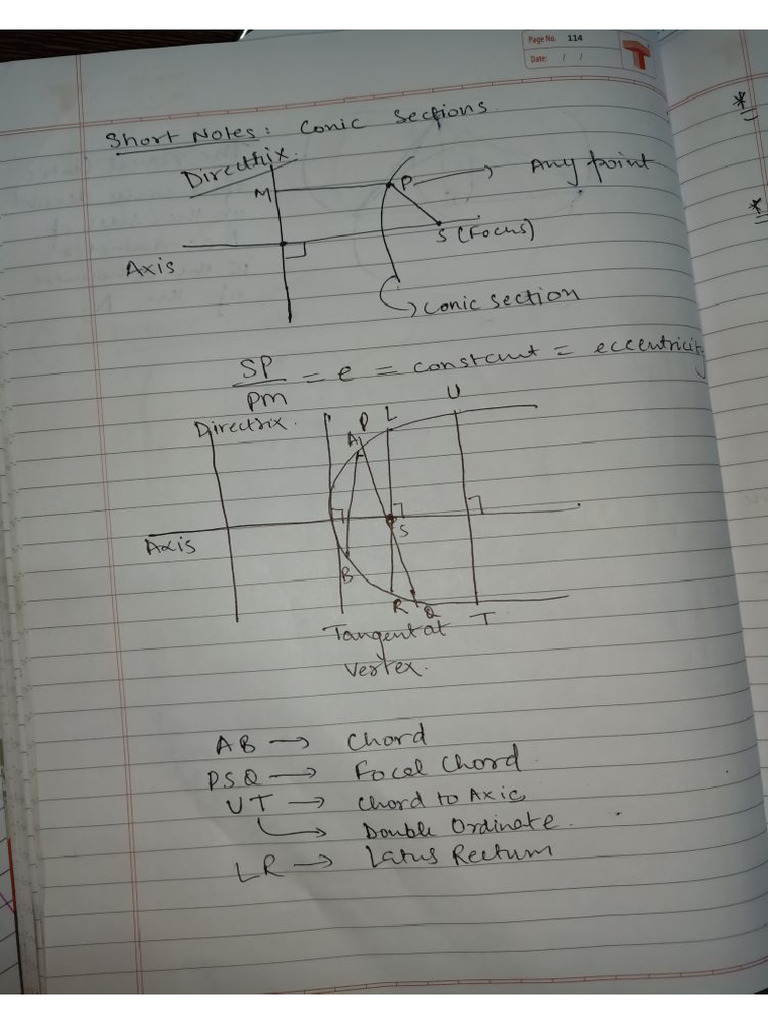 Page No. 114
Date: / /
Short Notes: Conic Sections
Directrix.
M
P
Any point
S (Focus)
Axis
Conic section
SP/PM = e = constant = eccentricity
Directrix.
A
P
L
U
Axis
S
B
R
Q
T
Tangent at
Vertex.
AB → Chord
PSQ → Focal Chord
UT → Chord to Axis
↳ Double Ordinate.
LR → Latus Rectum
*
*